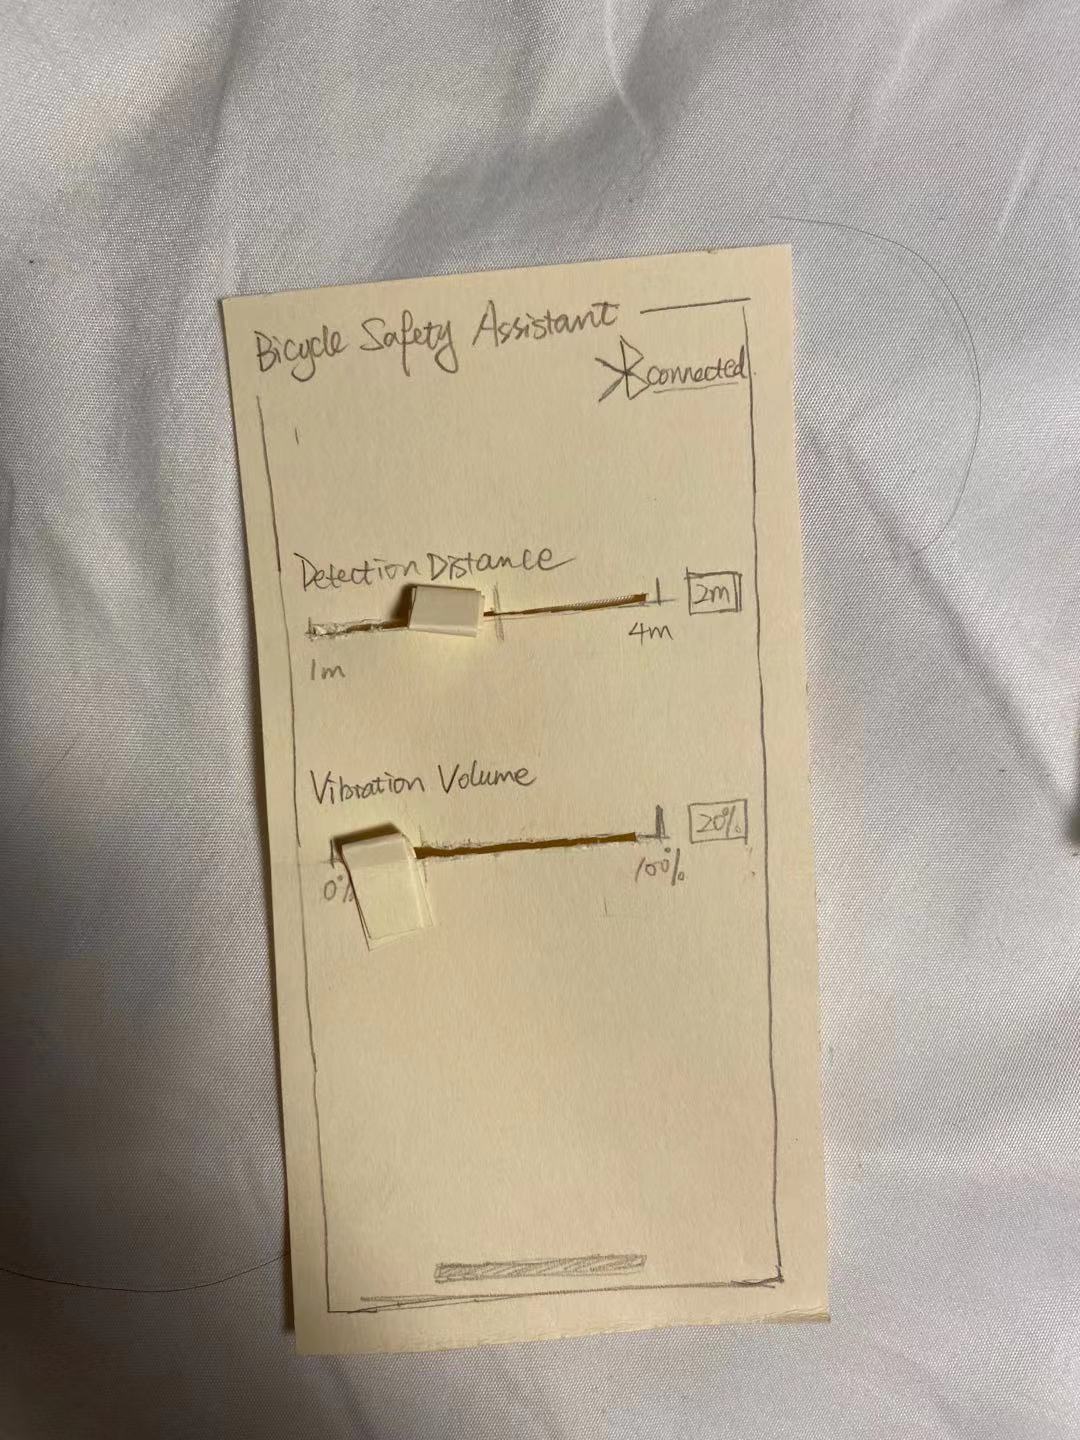 Bicycle Safety Assistant
connected
Detection Distance
2m
1m
4m
Vibration Volume
20%
0%
100%